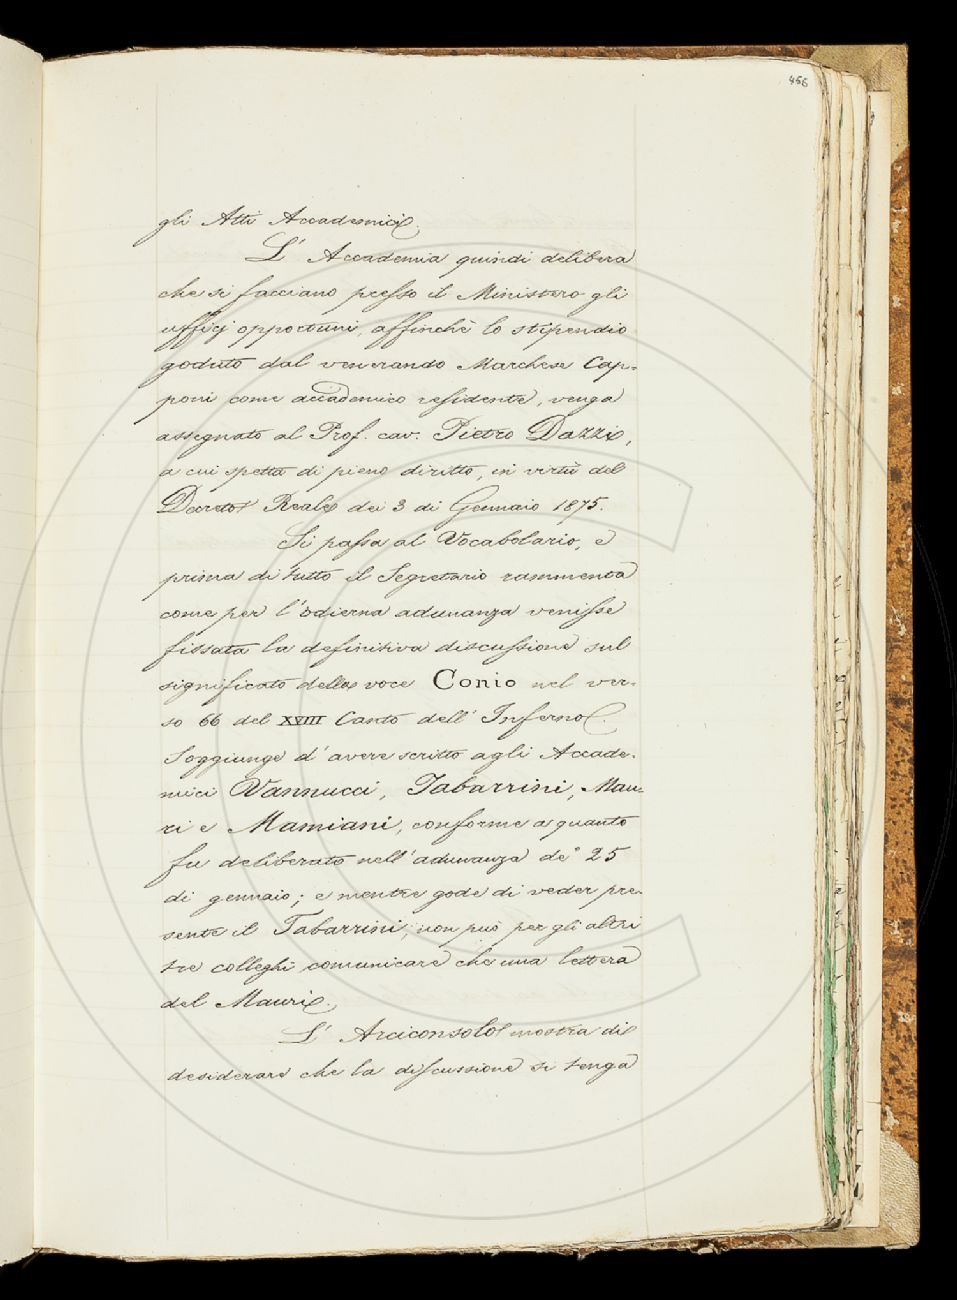 456
gli Atti Accademici.
L' Accademia quindi delibera
che si facciano presso il Ministero gli
ufficj opportuni, affinchè lo stipendio
goduto dal venerando Marchese Cap-
poni come accademico residente, venga
assegnato al Prof. cav. Pietro Dazzi,
a cui spetta di pieno diritto, in virtù del
Decreto Reale dei 3 di Gennaio 1875.
Si passa al Vocabolario, e
prima di tutto il Segretario rammenta
come per l'odierna adunanza venisse
fissata la definitiva discussione sul
significato della voce Conio nel ver-
so 66 del XVIII Canto dell' Inferno.
Soggiunge d'avere scritto agli Accade-
mici Vannucci, Tabarrini, Mau-
ri e Mamiani, conforme a quanto
fu deliberato nell'adunanza de' 25
di gennaio; e mentre gode di veder pre-
sente il Tabarrini, non può per gli altri
tre colleghi comunicare che una lettera
del Mauri.
L' Arciconsolo mostra di
desiderare che la discussione si tenga